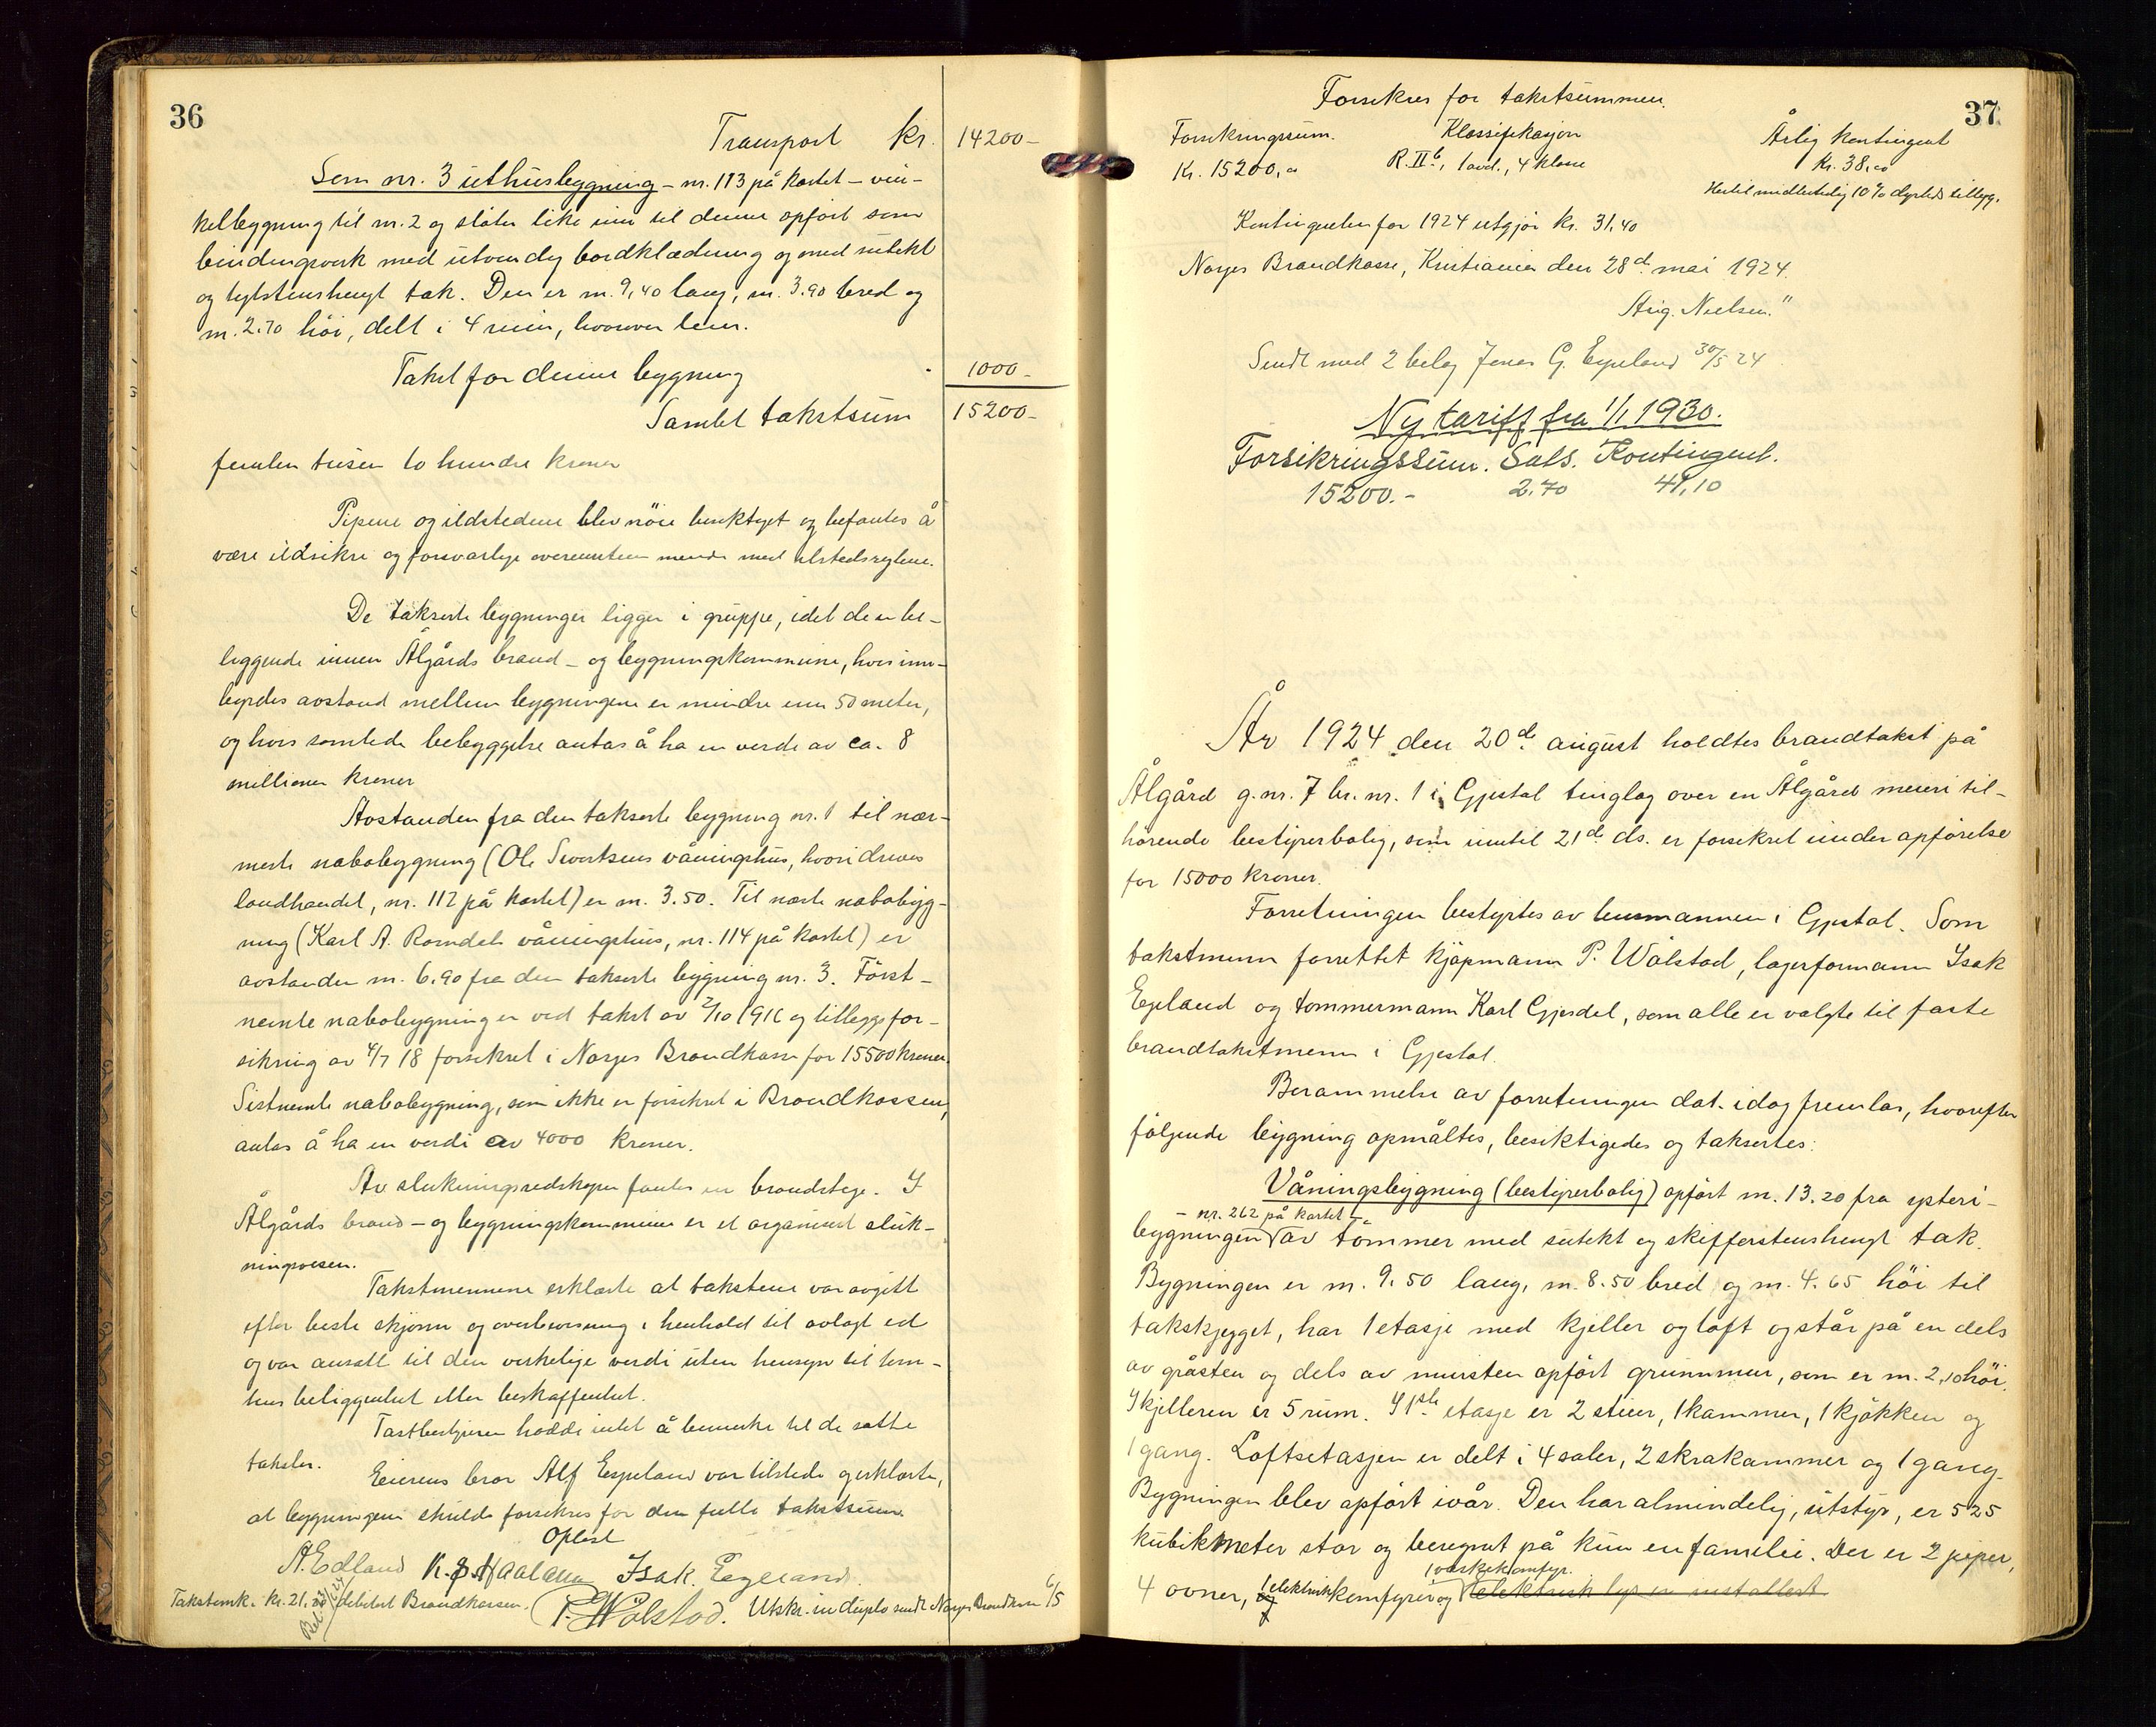 36
Transport kr. 14200-
Som nr. 3 uthusbygning - nr. 113 på kartet - vin-
kelbygning til nr. 2 og støter like inn til denne opført som
bindingsverk med utvendig bordklædning og med sutekt
og teglstenshengt tak. Den er m. 9,40 lang, m. 3.90 bred og
m. 2.70 høi, delt i 4 rum, hvorover lem.
Takst for denne bygning 1000-
Samlet takstsum 15200-
femten tusen to hundre kroner
Pipene og ildstedene blev nøie besiktiget og befantes å
være ildsikre og forsvarlige overensstemmende med ildstedsreglene.
De takserte bygninger ligger i gruppe, idet de er be-
liggende innen Ålgårds brand- og bygningskommune, hvis inn-
byrdes avstand mellem bygningene er mindre enn 50 meter,
og hvis samlede bebyggelse antas å ha en verdi av ca. 8
millioner kroner
Avstanden fra den takserte bygning nr. 1 til nær-
meste nabobygning (Ole Sivertsens våningshus, hvori drives
landhandel, nr. 112 på kartet) er m. 3.50. Til næste nabobyg-
ning (Karl A. våningshus, nr. 114 på kartet) er
avstanden m. 6,90 fra den takserte bygning nr. 3. Først-
nevnte nabobygning er ved takst av 2/10 1916 og tilleggsfor-
sikring av 4/7 18 forsikret i Norges Brandkasse for 15500 kroner.
Sistnevnte nabobygning, som ikke er forsikret i Brandkassen,
antas å ha en verdi av 4000 kroner.
Av slukningsredskaper fantes en brandstige. I
Ålgårds brand- og bygningskommune er et organisert sluk-
ningsvesen.
Takstmennene erklærte at takstene var avgitt
efter beste skjønn og overbevisning i henhold til avlagt ed
og var ansatt til den virkelige verdi uten hensyn til tom-
tens beliggenhet eller beskaffenhet.
Takstbestyreren hadde intet å bemerke til de satte
takster.
Eierens bror Alf Espeland var tilstede og erklærte,
at bygningene skulde forsikres for den fulle takstsum.
Oplest
A. Edland K. S. Haaland Isak Egeland.
P. Wålstad.
Takstomk. kr. 21, debitert Brandkassen. Utskr. in duplo sendt Norges Brandkasse 6/5
37
Forsikres for takstsummen.
Forsikringssum. Klassifikasjon Årlig kontingent
Kr. 15200,00 R. IIb, 1 avd., 4 klasse Kr. 38,00
Hertil midlertidig 10% dyrtids tillegg.
Kontingenten for 1924 utgjør kr. 31,40
Norges Brandkasse, Kristiania den 28de mai 1924.
Nielsen."
Sendt med 2 bilag Jonas G. Espeland 30/5 24
Ny tariff fra 1/1 1930.
Forsikringssum. Sats. Kontingent.
15200.- 2.70 41,10
År 1924 den 20de august holdtes brandtakst på
Ålgård g.nr. 7 br.nr. 1 i Gjestal tinglag over en Ålgård meieri til-
hørende bestyrerbolig, som inntil 21de ds. er forsikret under opførelse
for 15000 kroner.
Forretningen bestyrtes av lensmannen i Gjestal. Som
takstmenn forrettet kjøpmann P. Wålstad, lagerformann Isak
Egeland og tømmermann Karl Gjesdal, som alle er valgte til faste
brandtakstmenn i Gjestal.
Berammelse av forretningen dat. idag fremlas, hvorefter
følgende bygning opmåltes, besiktigedes og taksertes:
Våningsbygning (bestyrerbolig) opført m. 13.20 fra ysteri-
- nr. 262 på kartet -
bygningen av tømmer med sutekt og skifferstenshengt tak.
Bygningen er m. 9.50 lang, m. 8.50 bred og m. 4.65 høi til
takskjegget, har 1 etasje med kjeller og loft og står på en dels
av gråsten og dels av mursten opført grunnmur, som er m. 2,10 høi.
I kjelleren er 5 rum. I 1ste etasje er 2 stuer, 1 kammer, 1 kjøkken og
1 gang. Loftsetasjen er delt i 4 saler, 2 skrakammer og 1 gang.
Bygningen blev opført ivår. Den har almindelig, utstyr, er 525
kubikkmeter stor og beregnet på kun en familie. Der er 2 piper,
1 vaskekomfyr.
4 ovner, 1 elektrisk komfyrer og elektrisk lys er installert.